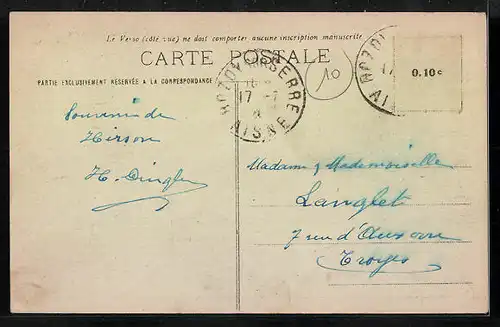 Le Verso (côté vue) ne doit comporter aucune inscription manuscrite
CARTE POSTALE
PARTIE EXCLUSIVEMENT RÉSERVÉE A LA CORRESPONDANCE
ROZOY SUR SERRE
17 -7
AISNE
10
ROZOY
17
AI
0.10c
Souvenir de
Hirson
H.
Madame & Mademoiselle
Langlet
7 rue d'Auxonne
Troyes